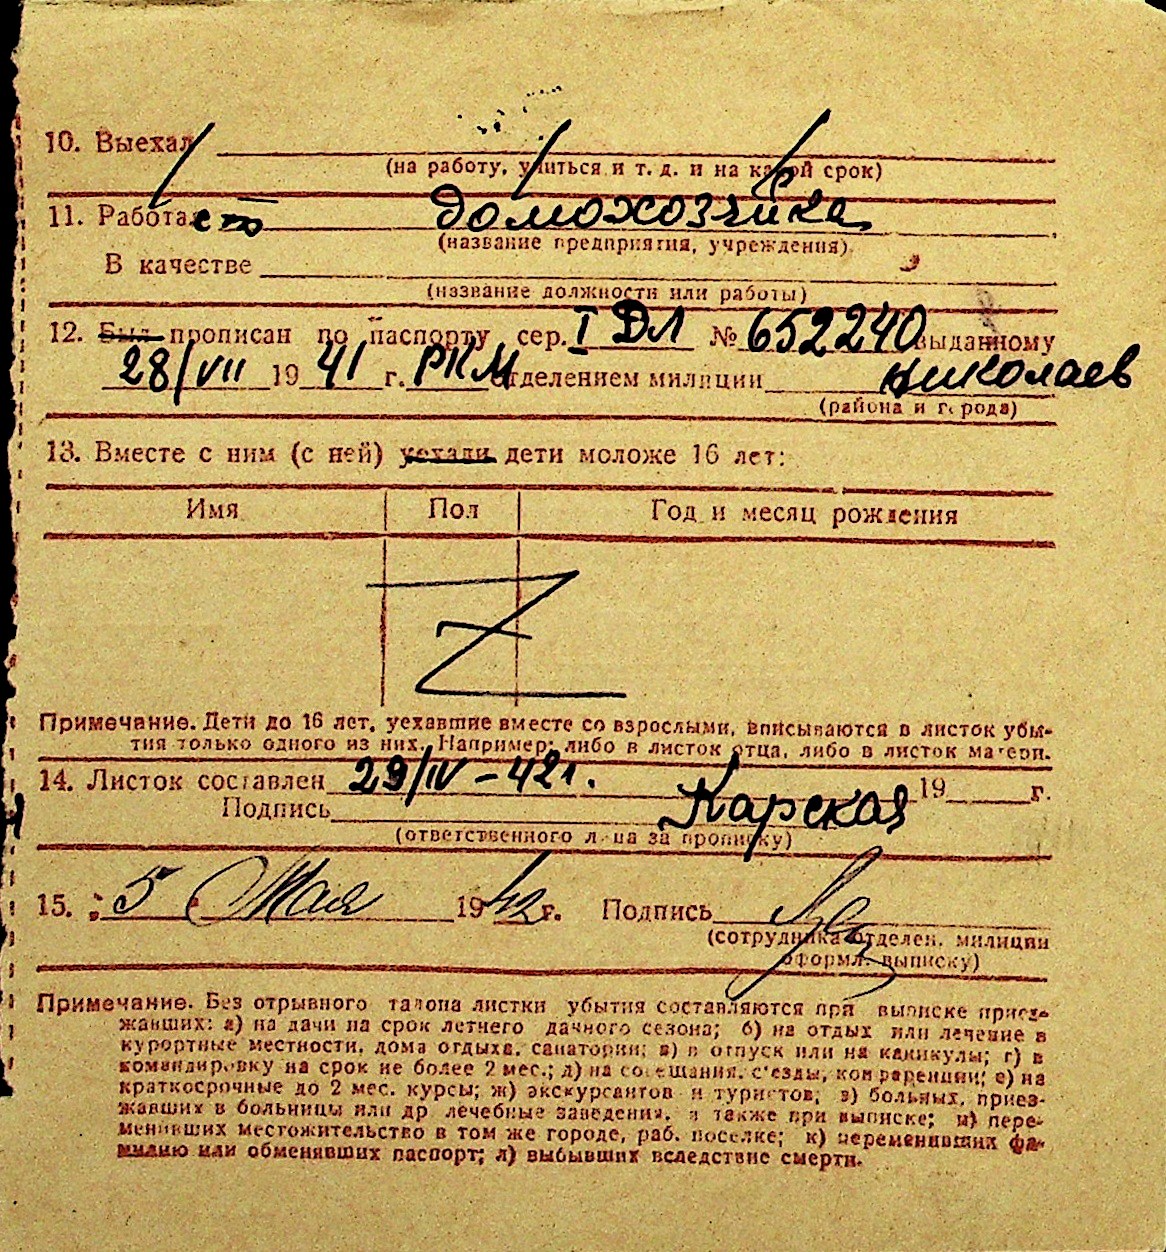 10. Выехал
(на работу, учиться и т. д. и на какой срок)
11. Работа ет домохозяйка
(название предприятия, учреждения)
В качестве
(название должности или работы)
12. Был прописан по паспорту сер. I ДЛ № 652240 выданному
28/VII 19 41 г. РКМ отделением милиции Николаев
(района и города)
13. Вместе с ним (с ней) уехали дети моложе 16 лет:
Имя Пол Год и месяц рождения
Z
Примечание. Дети до 16 лет, уехавшие вместе со взрослыми, вписываются в листок убы-
тия только одного из них. Например: либо в листок отца, либо в листок матери.
14. Листок составлен 29/IV – 42 г. 19 г.
Подпись Карская
(ответственного лица за прописку)
15. 5 Мая 1942 г. Подпись
(сотрудника отделен. милиции
оформл. выписку)
Примечание. Без отрывного талона листки убытия составляются при выписке приез-
жавших: а) на дачи на срок летнего дачного сезона; б) на отдых или лечение в
курортные местности, дома отдыха, санатории; в) в отпуск или на каникулы; г) в
командировку на срок не более 2 мес.; д) на совещания, с'езды, конференции; е) на
краткосрочные до 2 мес. курсы; ж) экскурсантов и туристов; з) больных, приез-
жавших в больницы или др лечебные заведения, а также при выписке; и) пере-
менивших местожительство в том же городе, раб. поселке; к) переменивших фа-
милию или обменявших паспорт; л) выбывших вследствие смерти.